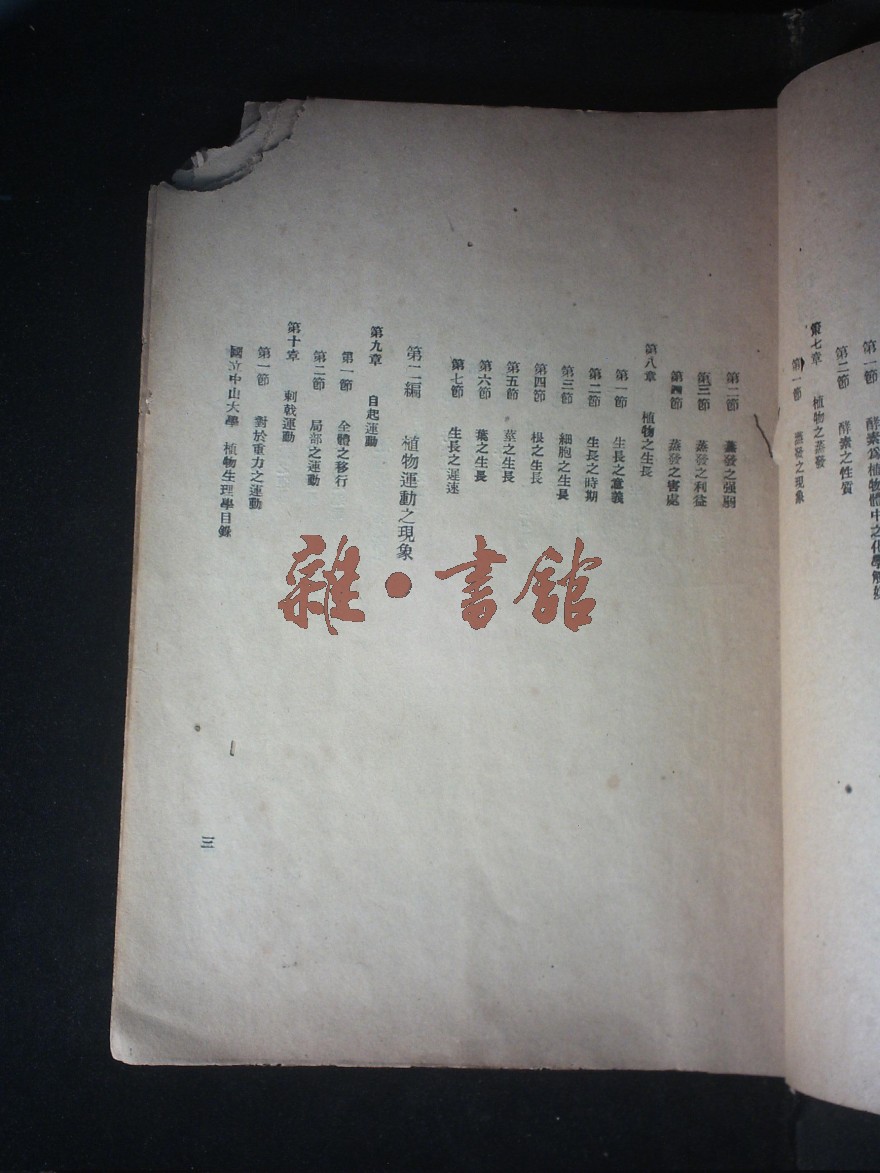 第一節 酵素爲植物體中之化學觸媒
第二節 酵素之性質
第七章 植物之蒸發
第一節 蒸發之現象
第二節 蒸發之强弱
第三節 蒸發之利益
第四節 蒸發之害處
第八章 植物之生長
第一節 生長之意義
第二節 生長之時期
第三節 細胞之生長
第四節 根之生長
第五節 莖之生長
第六節 葉之生長
第七節 生長之遲速
第二編 植物運動之現象
第九章 自起運動
第一節 全體之移行
第二節 局部之運動
第十章 刺戟運動
第一節 對於重力之運動
國立中山大學 植物生理學目錄
三
雜·書館